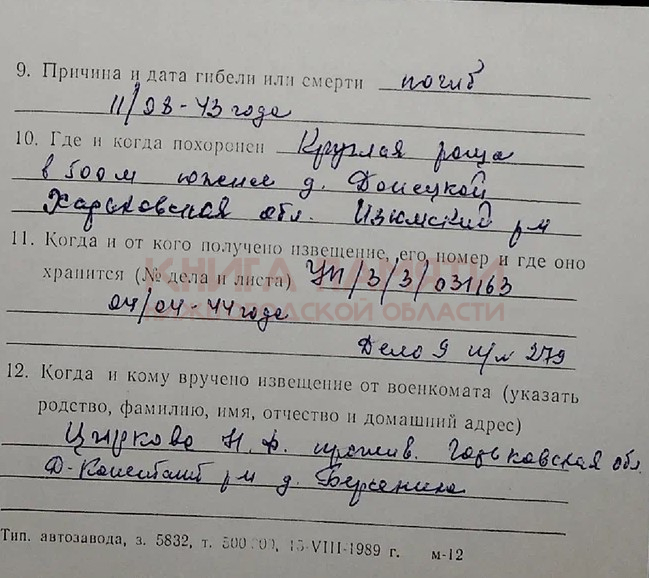 9. Причина и дата гибели или смерти погиб
11/08-43 года
10. Где и когда похоронен Круглая роща
в 500 м южнее д. Донецкой
Харьковская обл. Изюмский р-н
11. Когда и от кого получено извещение, его номер и где оно
хранится (№ дела и листа) УП/3/3/031163
КНИГА ПАМЯТИ
НИЖЕГОРОДСКОЙ ОБЛАСТИ
04/04-44 года
Дело 9 и/л 279
12. Когда и кому вручено извещение от военкомата (указать
родство, фамилию, имя, отчество и домашний адрес)
Циркова Н. Ф. прожив. Горьковская обл.
Д-Констант р-н д.
Тип. автозавода, з. 5832, т. 15-VIII-1989 г. м-12